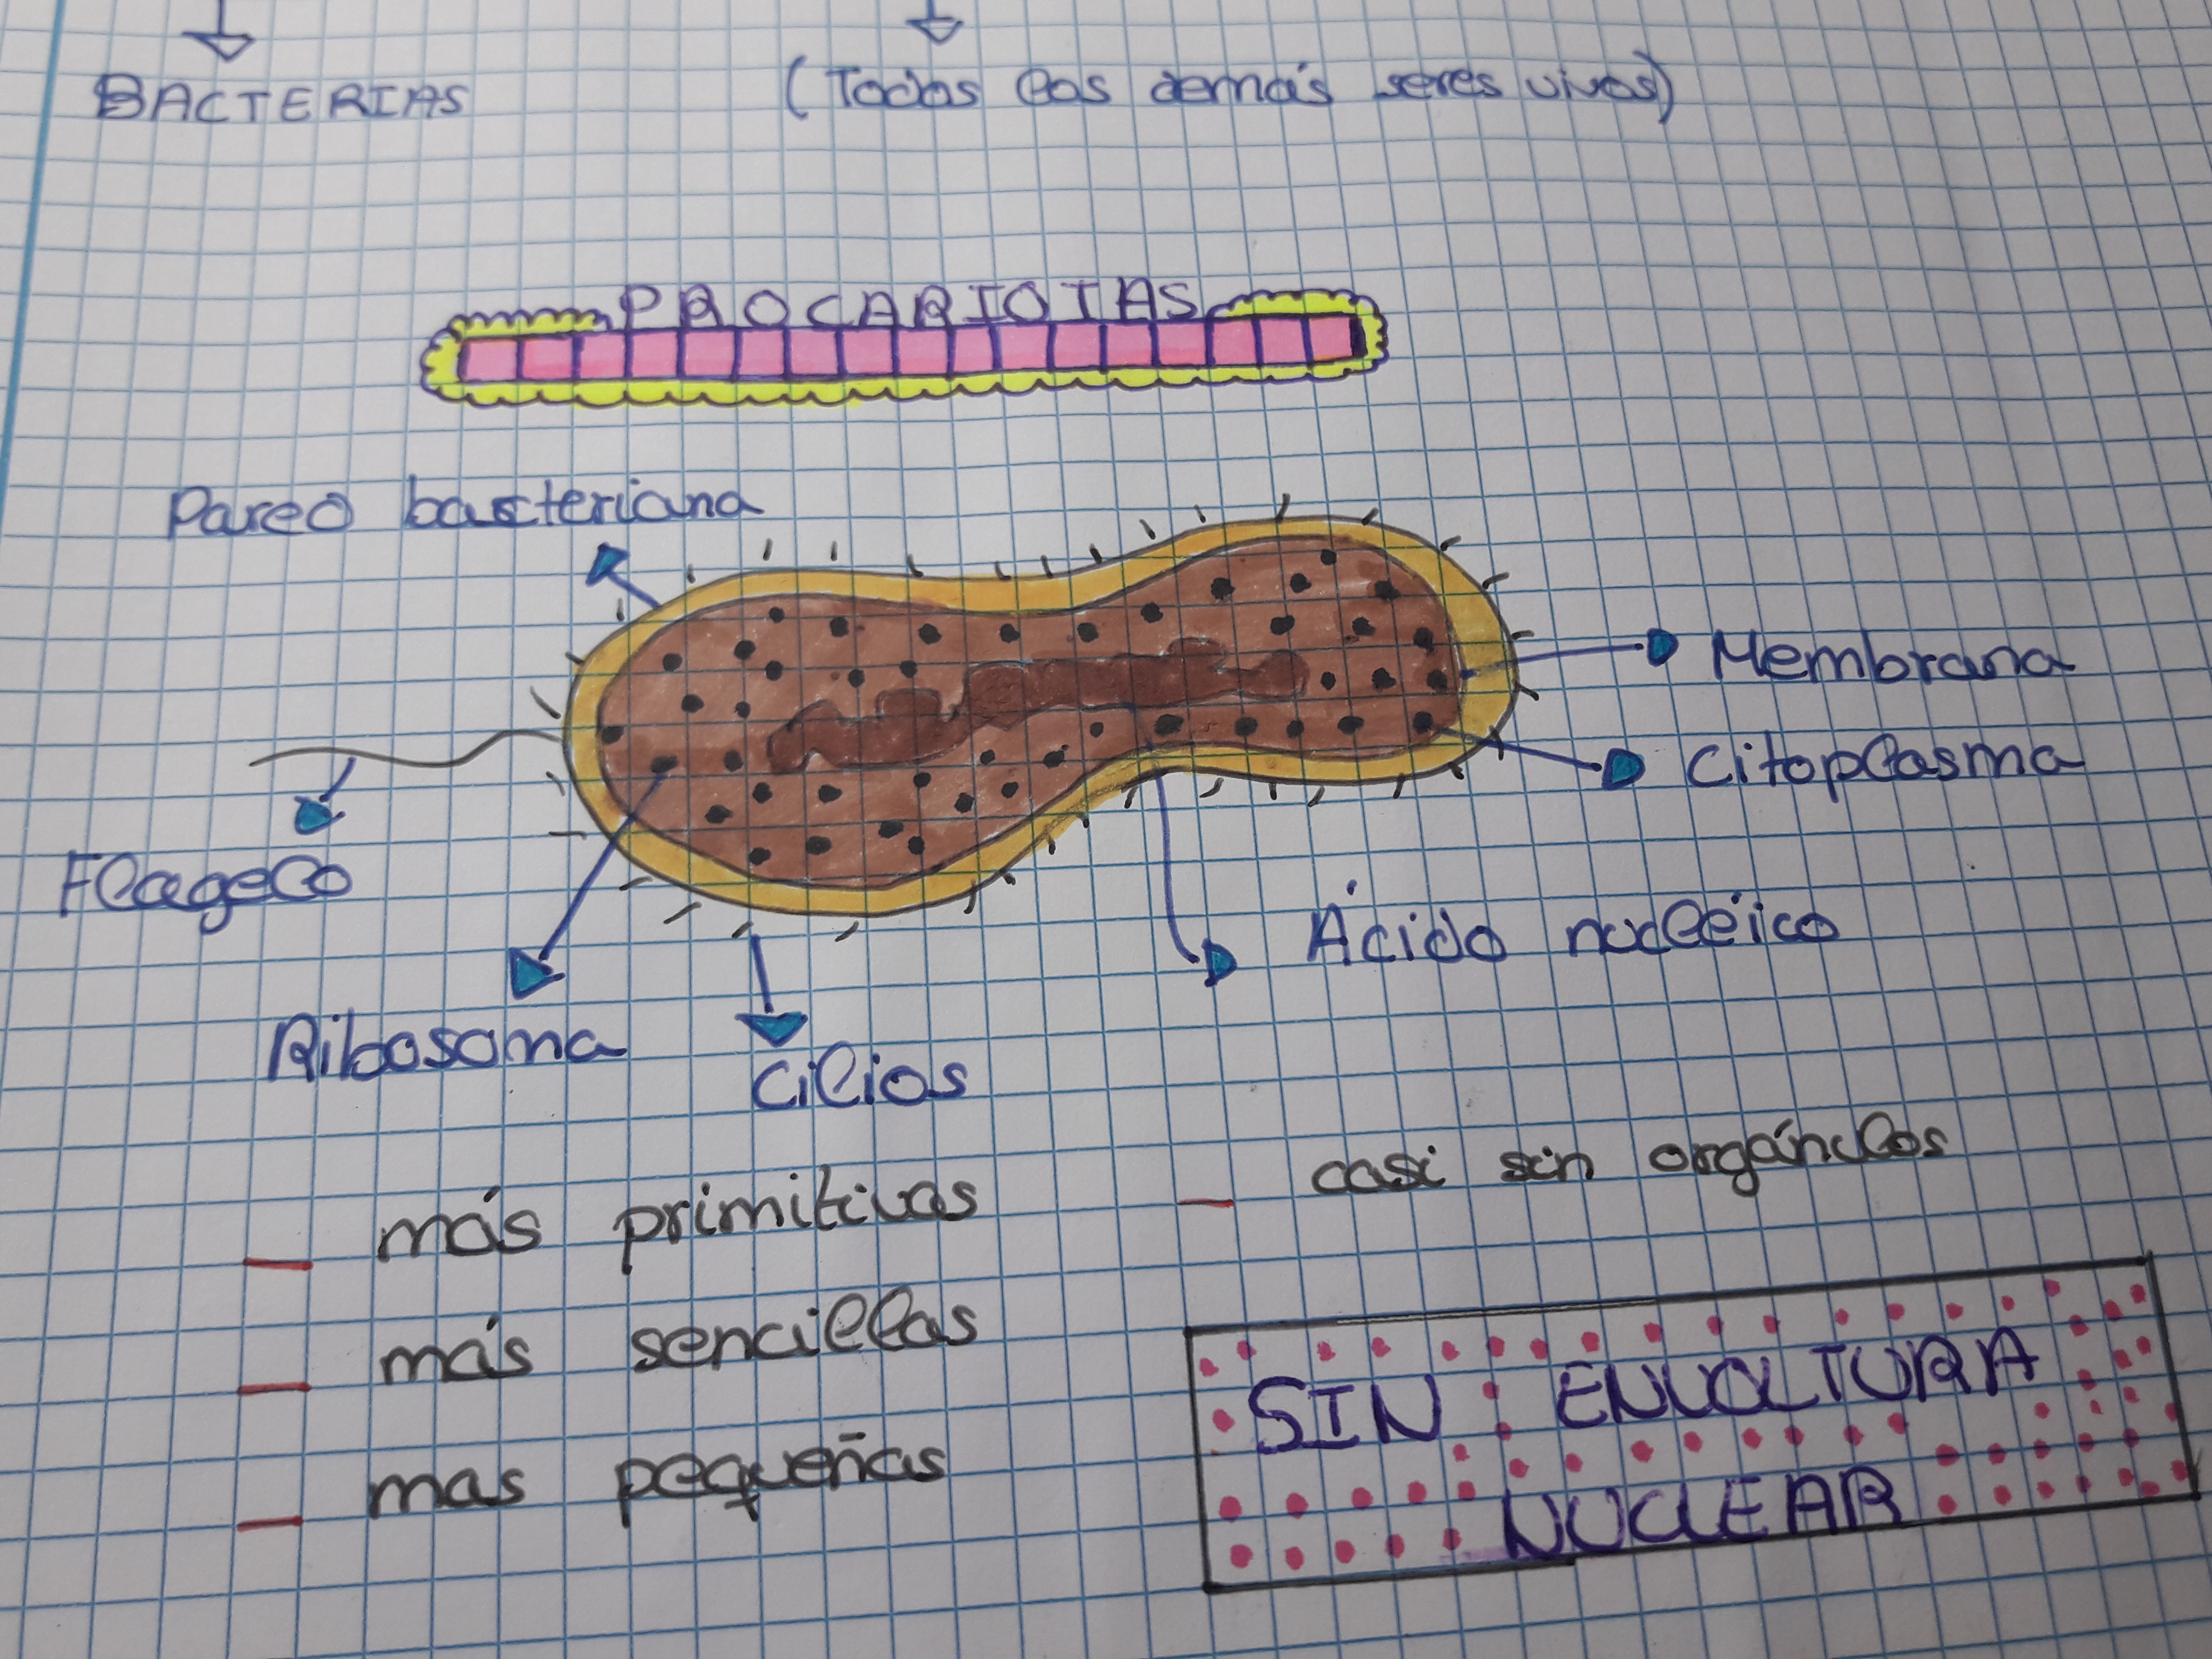 BACTERIAS
(Todos los demás seres vivos)
PROCARIOTAS
Pared bacteriana
Membrana
Citoplasma
Flagelo
Ácido nucléico
Ribosoma
Cilios
casi sin orgánulos
más primitivas
más sencillas
SIN ENVOLTURA
mas pequeñas
NUCLEAR